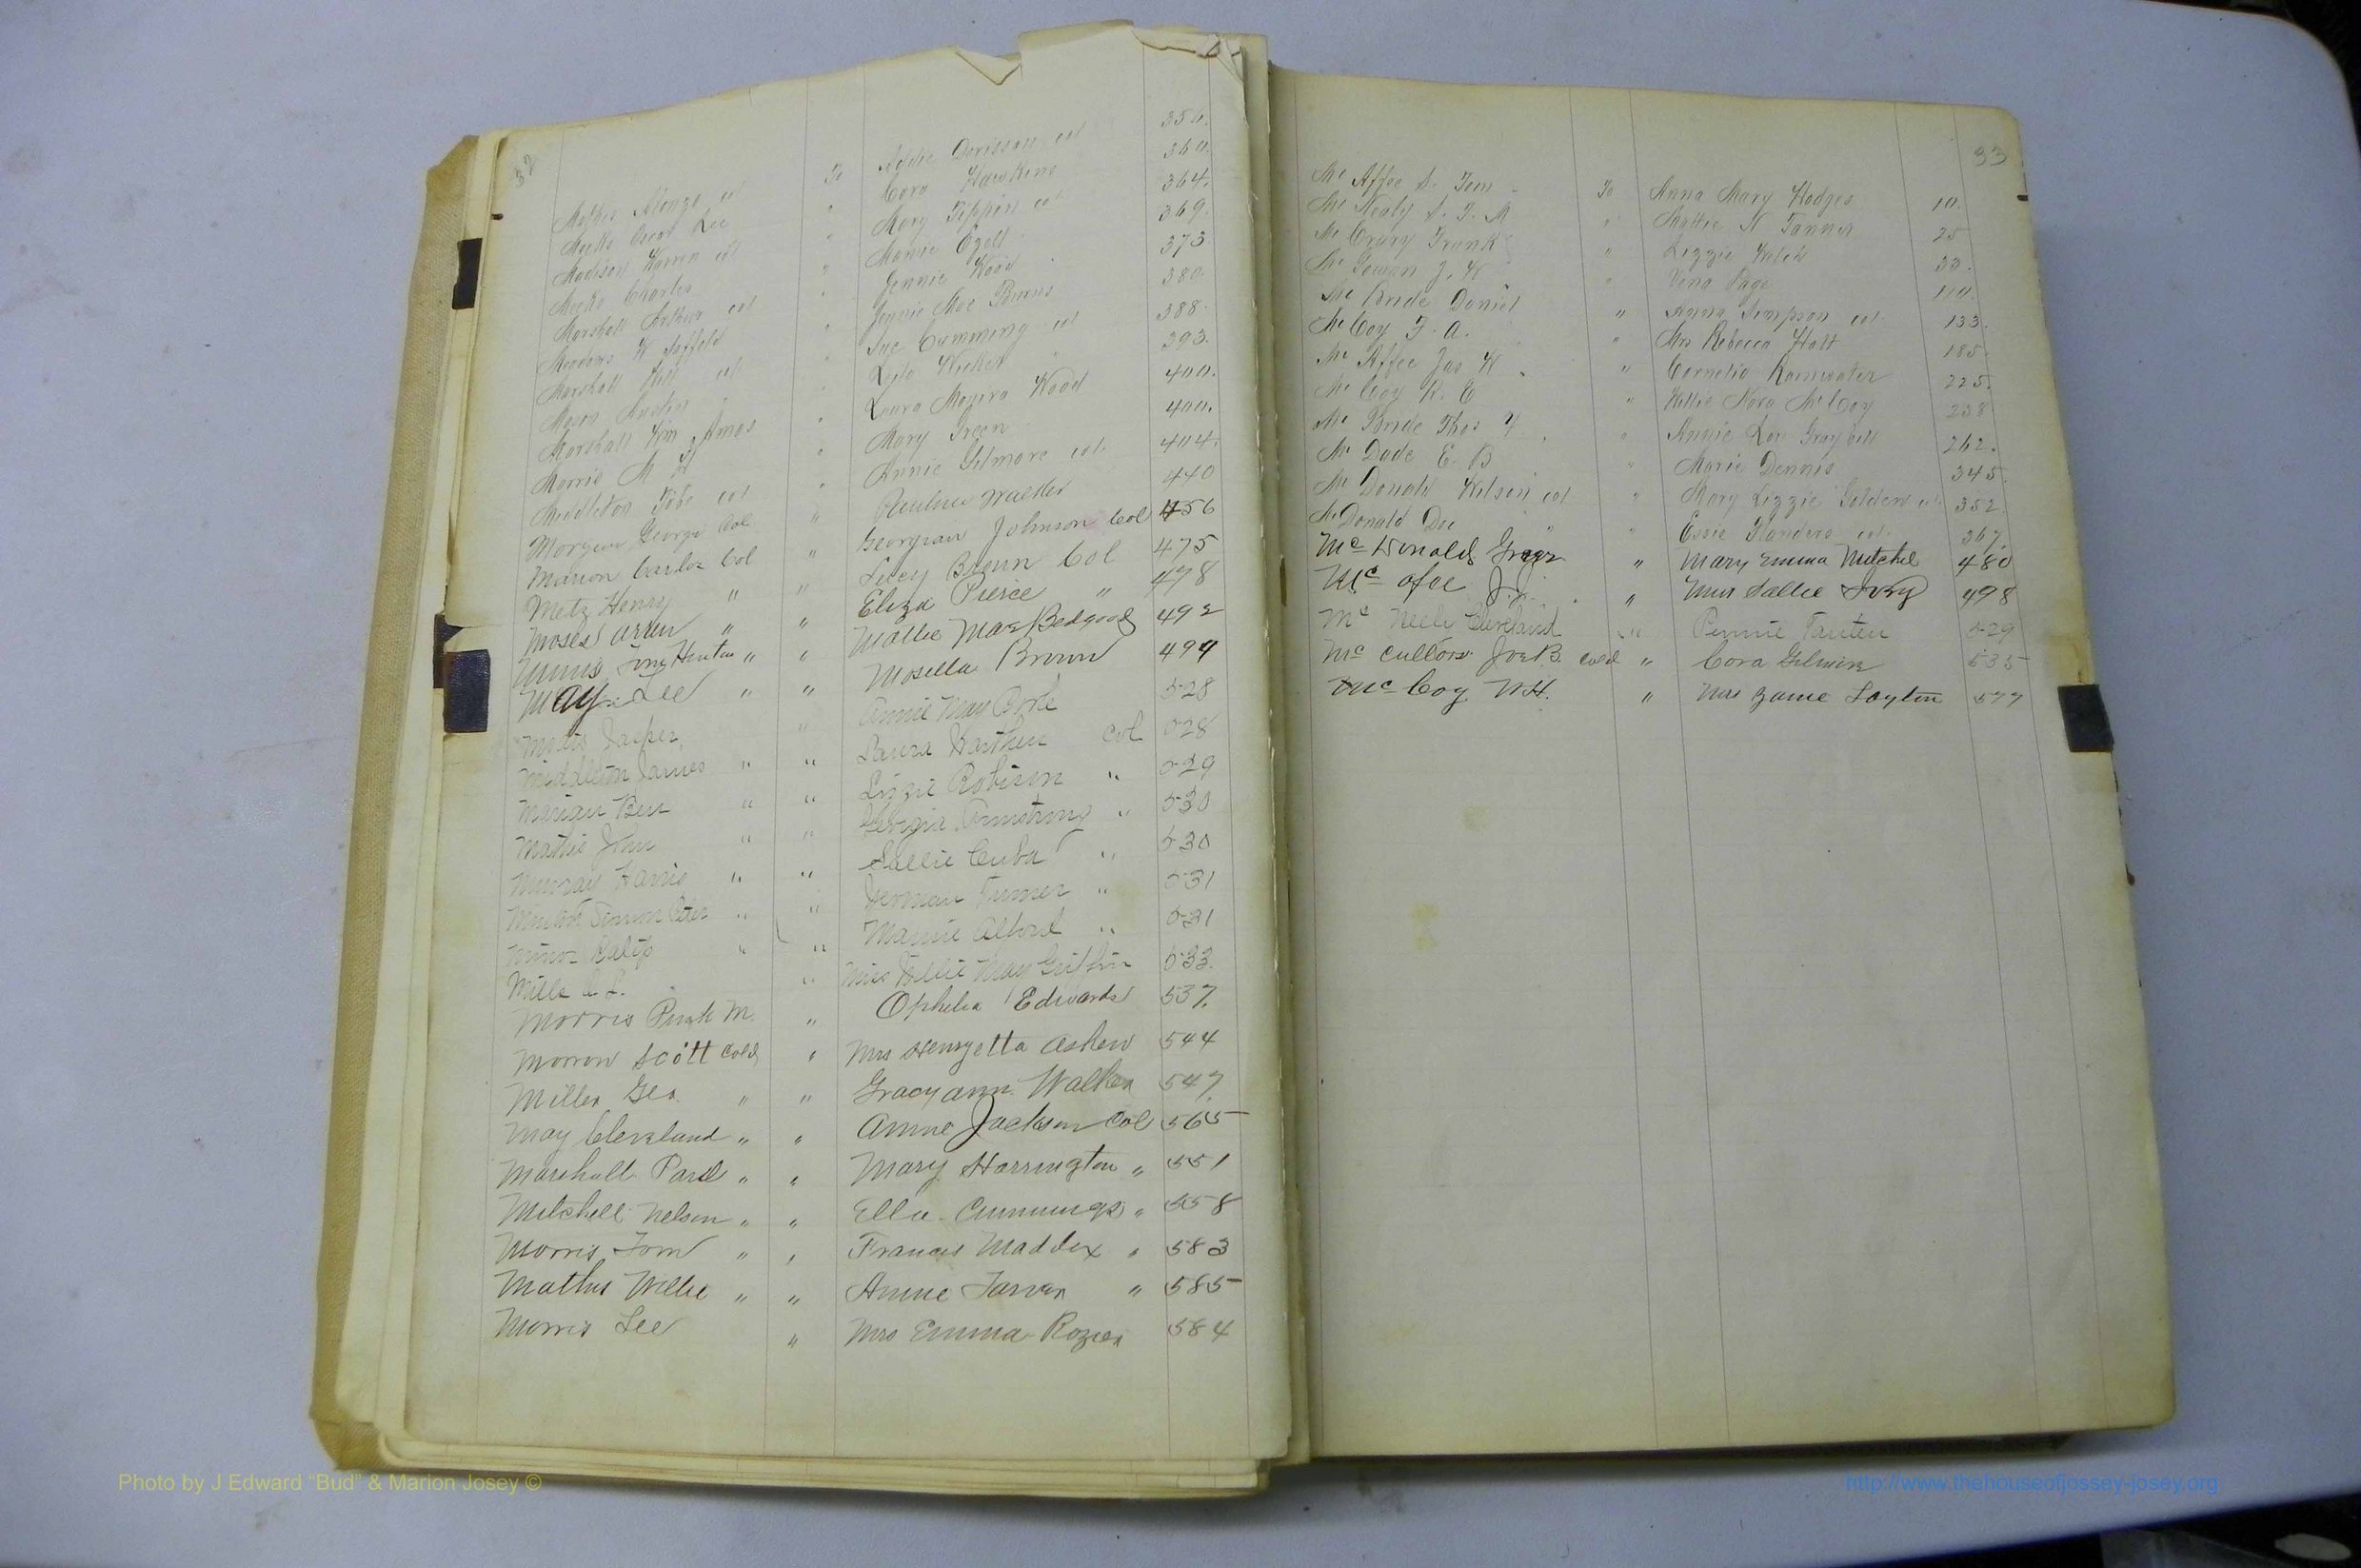 32
Mathis Alonzo col To Addie Dorisson col 354.
Meeks Oscar Lee " Cora Hawkins 360.
Madison Warren col " Mary Tippin col 364.
Meeks Charles " Mamie Ezell 369.
Marshall Arthur col " Jennie Wood 373
Meadows W " Jennie Mae Burns 380
Marshall Will col " Sue Cumming col 388.
Mason Austin " " Leila Wicker " 393.
Marshall Wm Amos " Laura Wood 400.
Morris M " Mary Green 400.
Middleton Tobe col " Annie Gilmore col. 404.
Morgan George Col " Pauline Walker 440
Marion Carlos Col " Georgian Johnson Col 456
Metz Henry " " Lucy Brown Col 475
Moses " " Eliza Pierce " 478
" " Mattie Mae Bedgood 492
May Lee " " Mosella Brown 494
Jasper " Annie May 528
Middleton James " " Laura col 528
Marian Ben " " Lizzie Robison " 529
Mathis John " " Georgia Armstrong " 530
Murray Harris " " Sallie Cuba " 530
" " Turner " 531
Minor " " Mamie Alford " 531
Mills " Miss May Griffin 533.
Morris M. " Ophelia Edwards 537.
Morrow Scott Cold " Mrs Henryetta Askew 544
Miller Geo. " " Gracy ann Walker 547.
May Cleveland " " Annie Jackson Col 565
Marshall Paul " " Mary Harrington " 551
Mitchell Nelson " " Ella Cummings " 558
Morris Tom " " Frances Maddox " 583
Mathis Willie " " Annie Tarver " 585
Morris Lee " Mrs Emma Rozier 584
33
Mc Affee S. Tom To Anna Mary Hodges 10.
Mc Nealy S. J. M " Mattie N Tanner 25
Mc Crary Frank " Lizzie Welch 33.
Mc Gowan J. W " Vena Page 110.
Mc Bride Daniel " Anna Simpson col. 133.
Mc Coy F. A. " Mrs Rebecca Holt 185.
Mc Affee Jas W " Cornelia Rainwater 225.
Mc Coy R. E " Willie Nora McCoy 238
Mc Bride Thos Y. " Annie Lou Graybill 262.
Mc Dade E. B " Marie Dennis 345.
Mc Donald Wilson col " Mary Lizzie Golden col 352.
McDonald Doc " " Essie Flanders col. 367.
Mc Donald " Mary Emma Mitchel 480
Mc afee J. J. " Miss Sallie Ivey 498
Mc Neele Cleveland " Pennie 529
Mc Cullors Joe B. cold " Cora Gilmore 535
Mc Coy N H. " Mrs Layton 577
Photo by J Edward “Bud” & Marion Josey ©
http://www.thehouseofjossey-josey.org